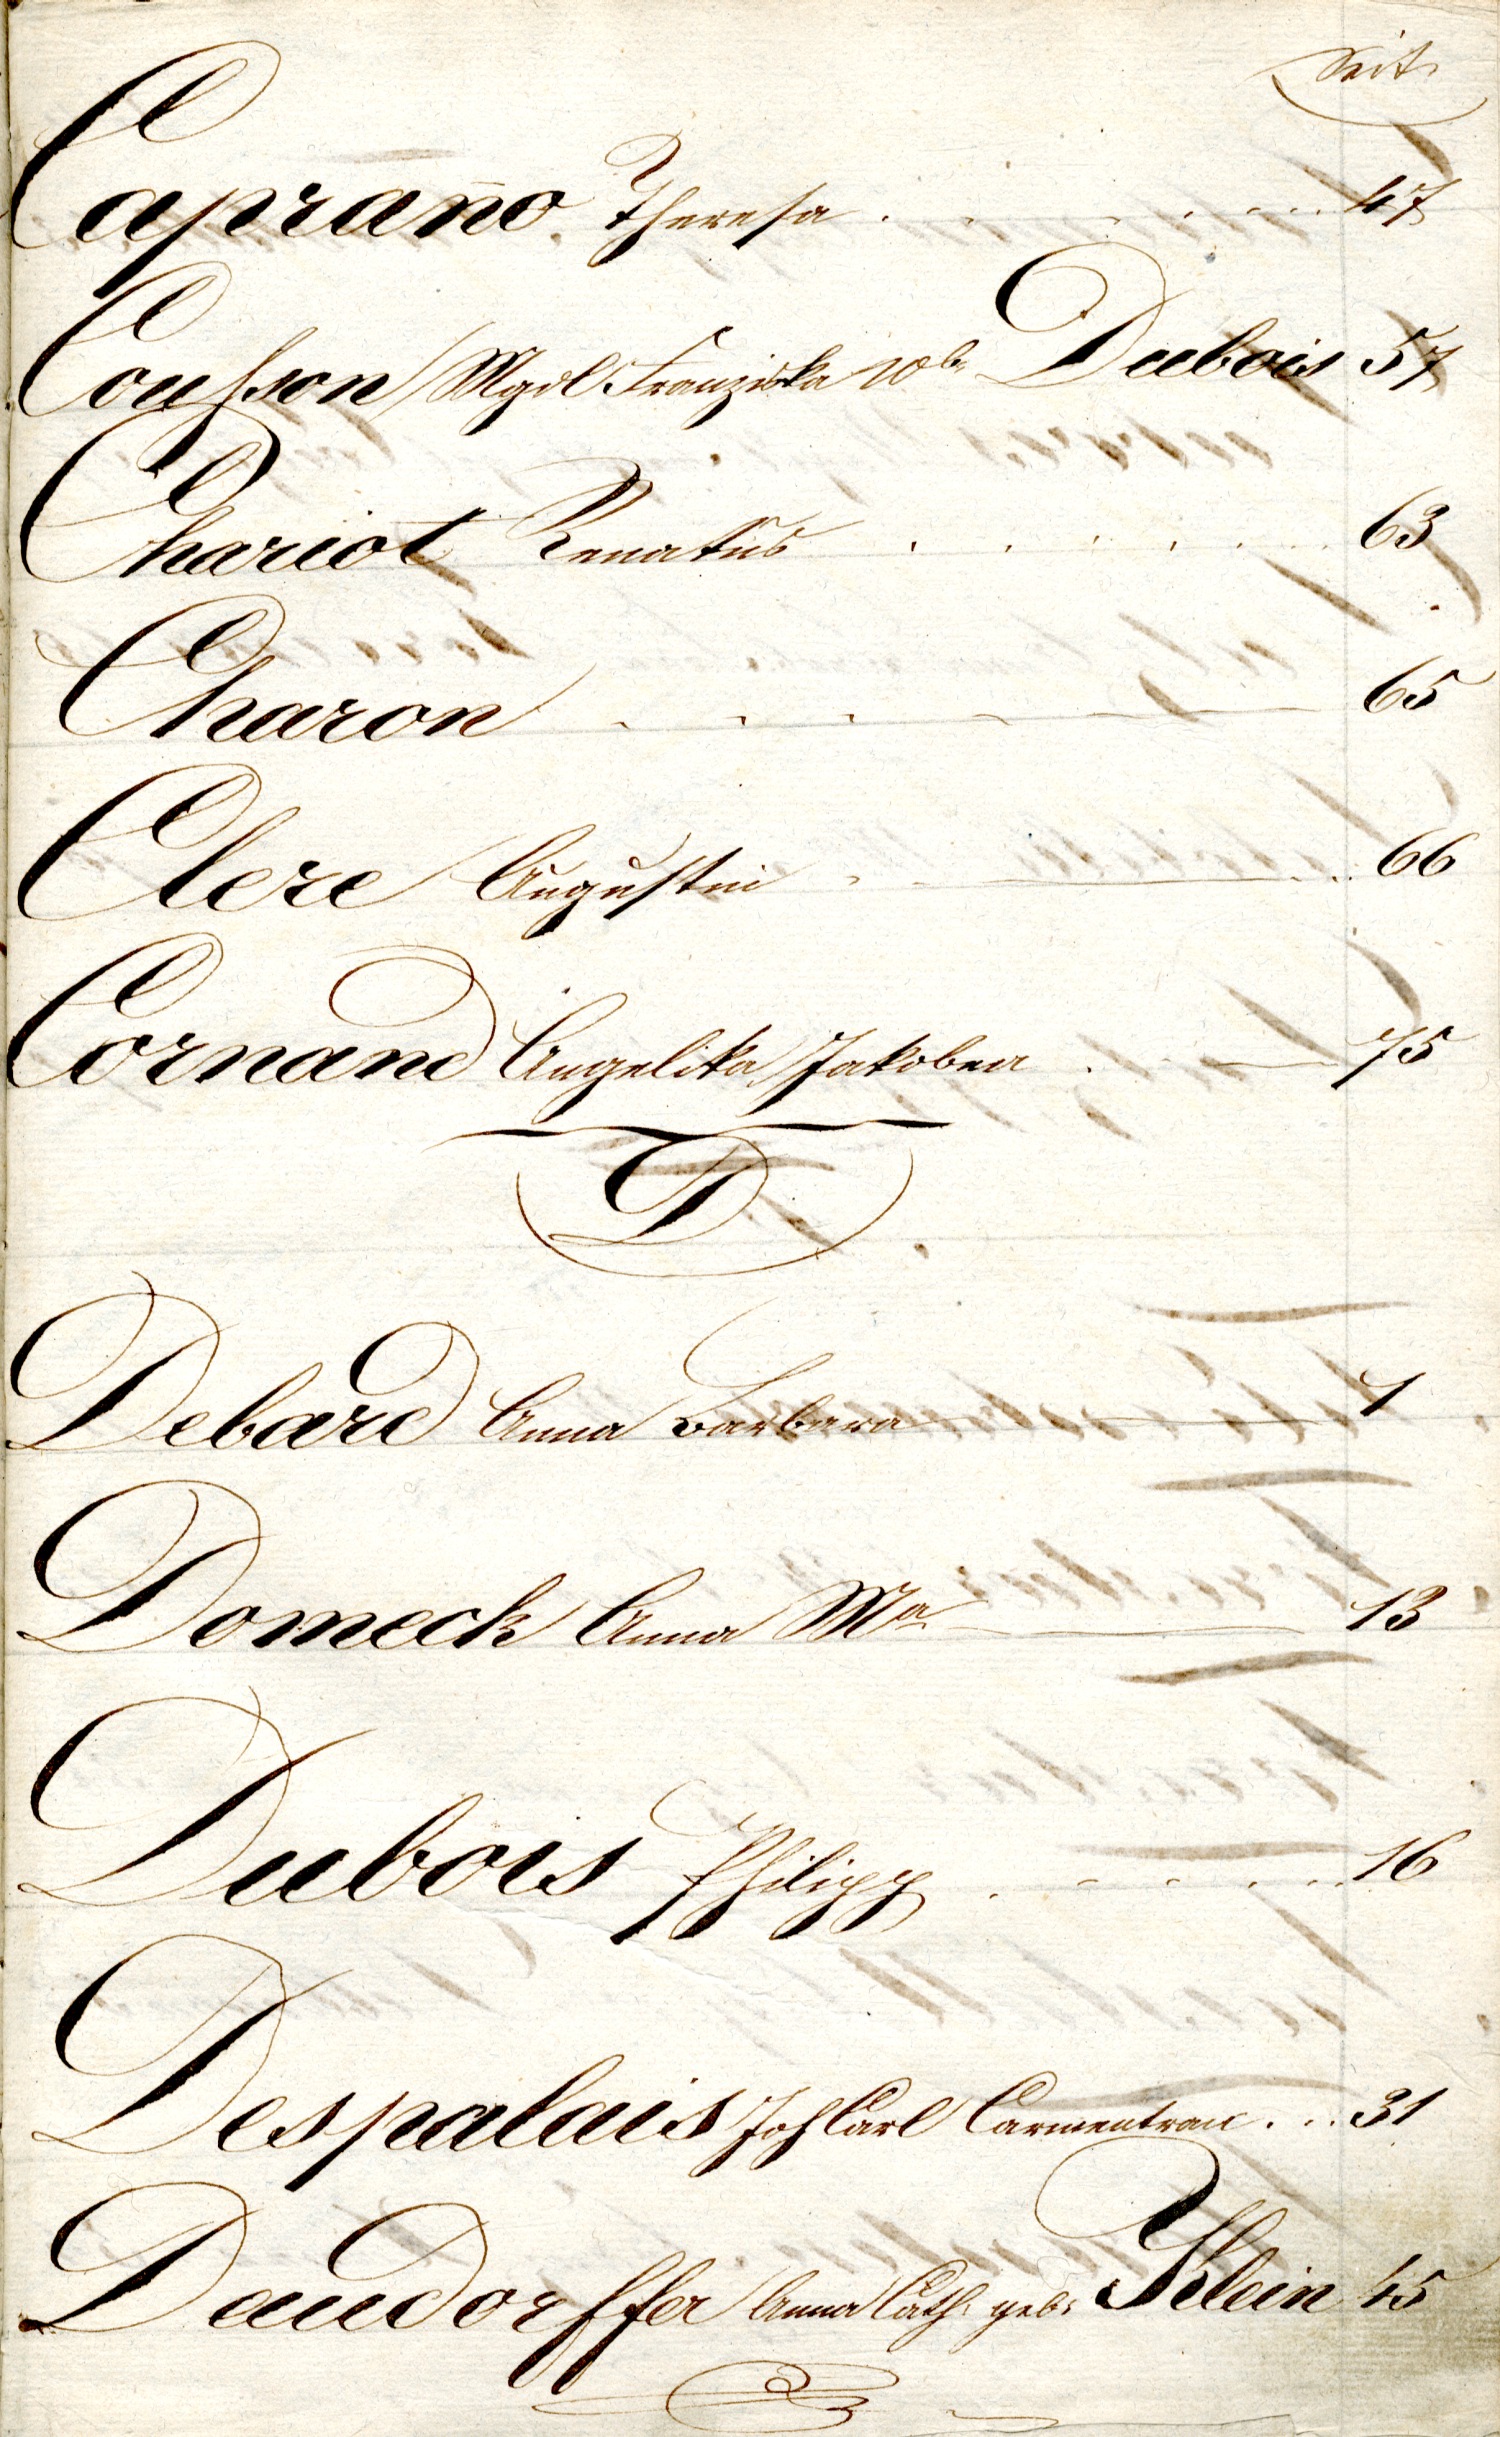 Seite
Caprano Theresa . . . . . . . 47
Cousson Mgdl Franziska wb. Dubois 57
Chariot Renatus . . . . . . 63
Charon . . . . 65
Clere Augustin . . 66
Cornand Angelika Jakobea . 75
D
Debard Anna Barbara 1
Domeck Anna Ma. 13
Dubois Philipp . . . . . 16
Despalais Joh Carl Carmentran . . . 31
Daudorffer Anna Cath. geb. Klein 45